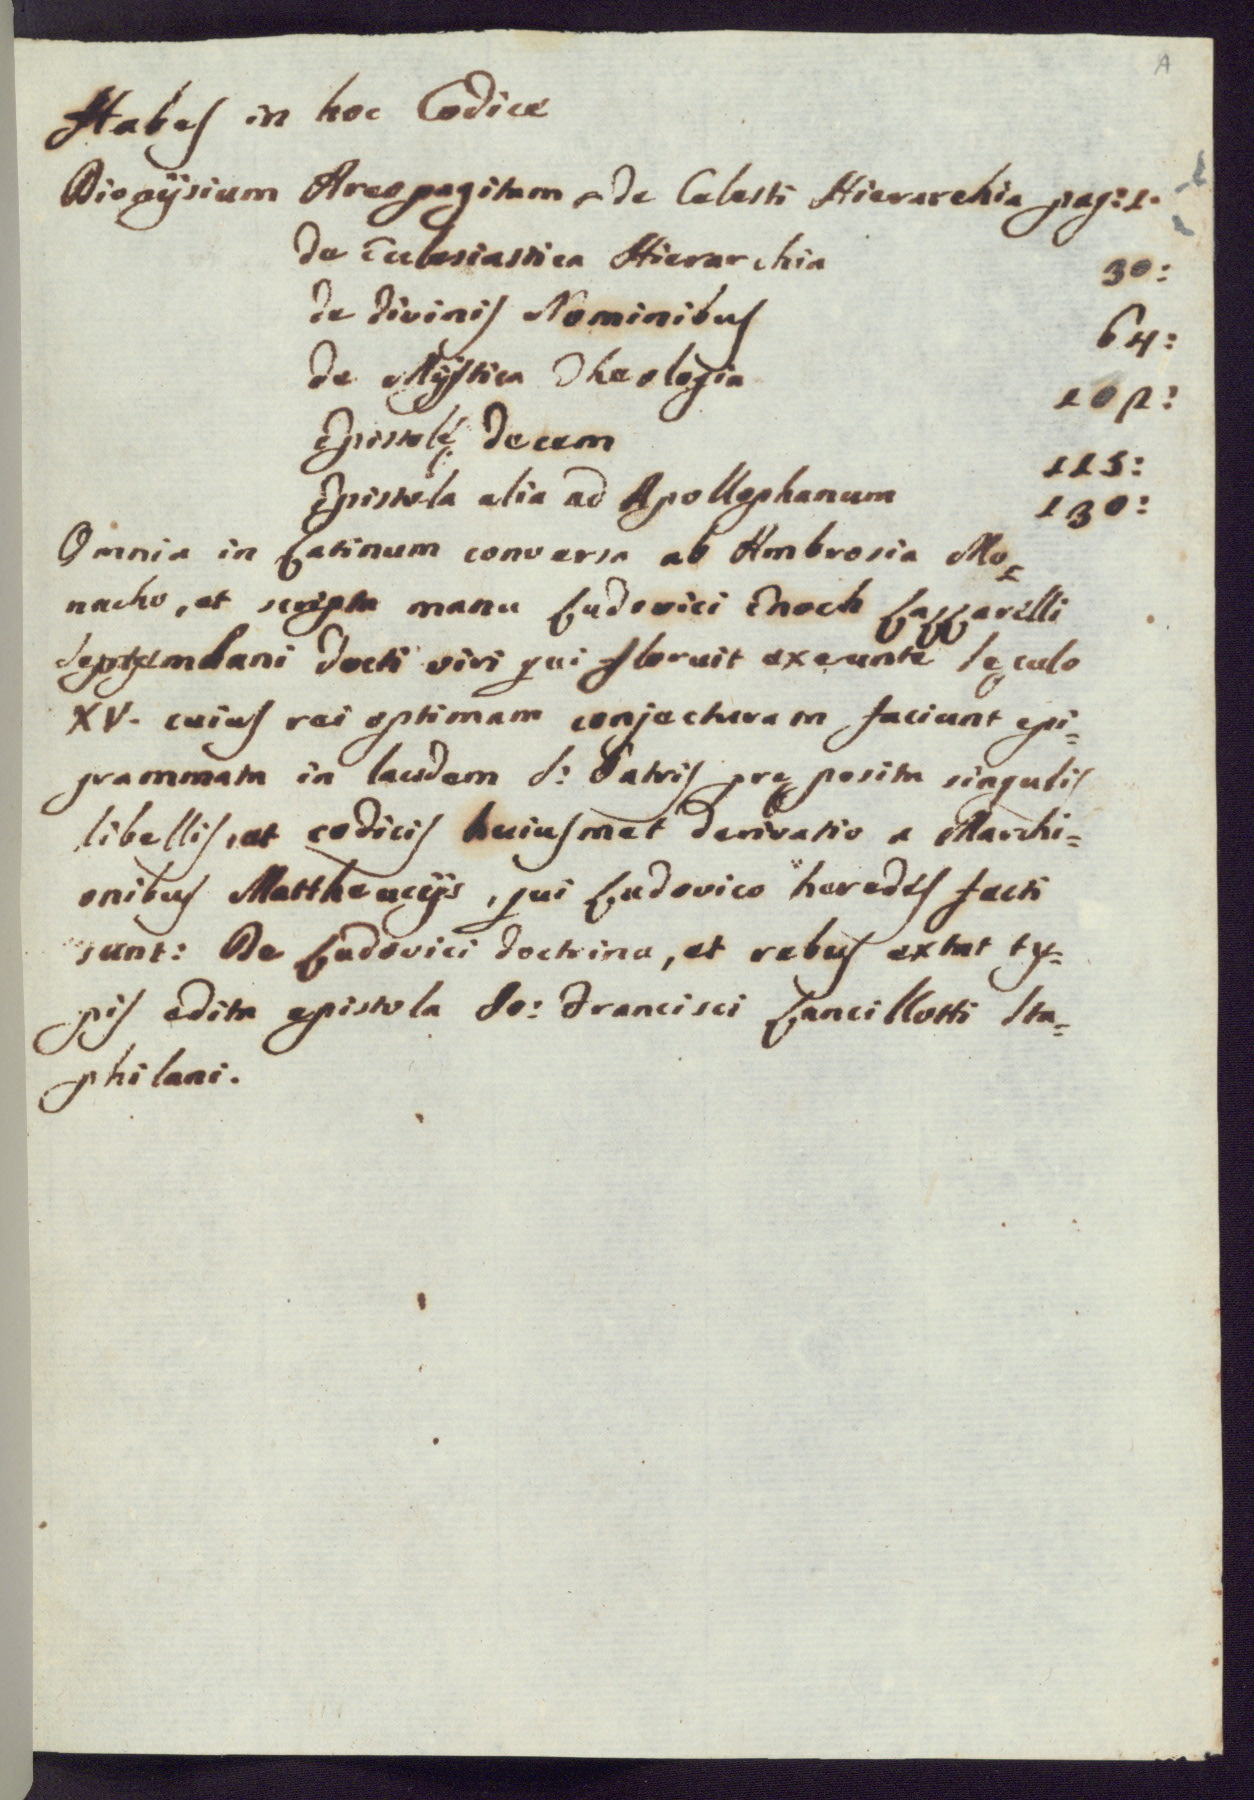 A
Habes in hoc Codice
Dionÿsium Areopagitam de Celesti Hierarchia pag: 1.
de Ecclesiastica Hierarchia 30:
de divinis Nominibus 64:
de Mÿstica Theologia 108:
Epistolę decem 115:
Epistola alia ad Apollophanum 130:
Omnia in Latinum conversa ab Ambrosia Mo=
nacho, et scripta manu Ludovici Enoch Lazzarelli
Septempedani docti viri qui floruit exeunte Sęculo
XV. cuius rei optimam conjecturam faciunt epi=
grammata in laudem S: Patris pręposita singulis
libellis, et codicis huiusmet derivatio a Marchi=
onibus Mattheucijs, qui Ludovico heredes facti
sunt: De Ludovici doctrina, et rebus extat ty=
pis edita epistola Jo: Francisci Lancillotti Sta=
philani.